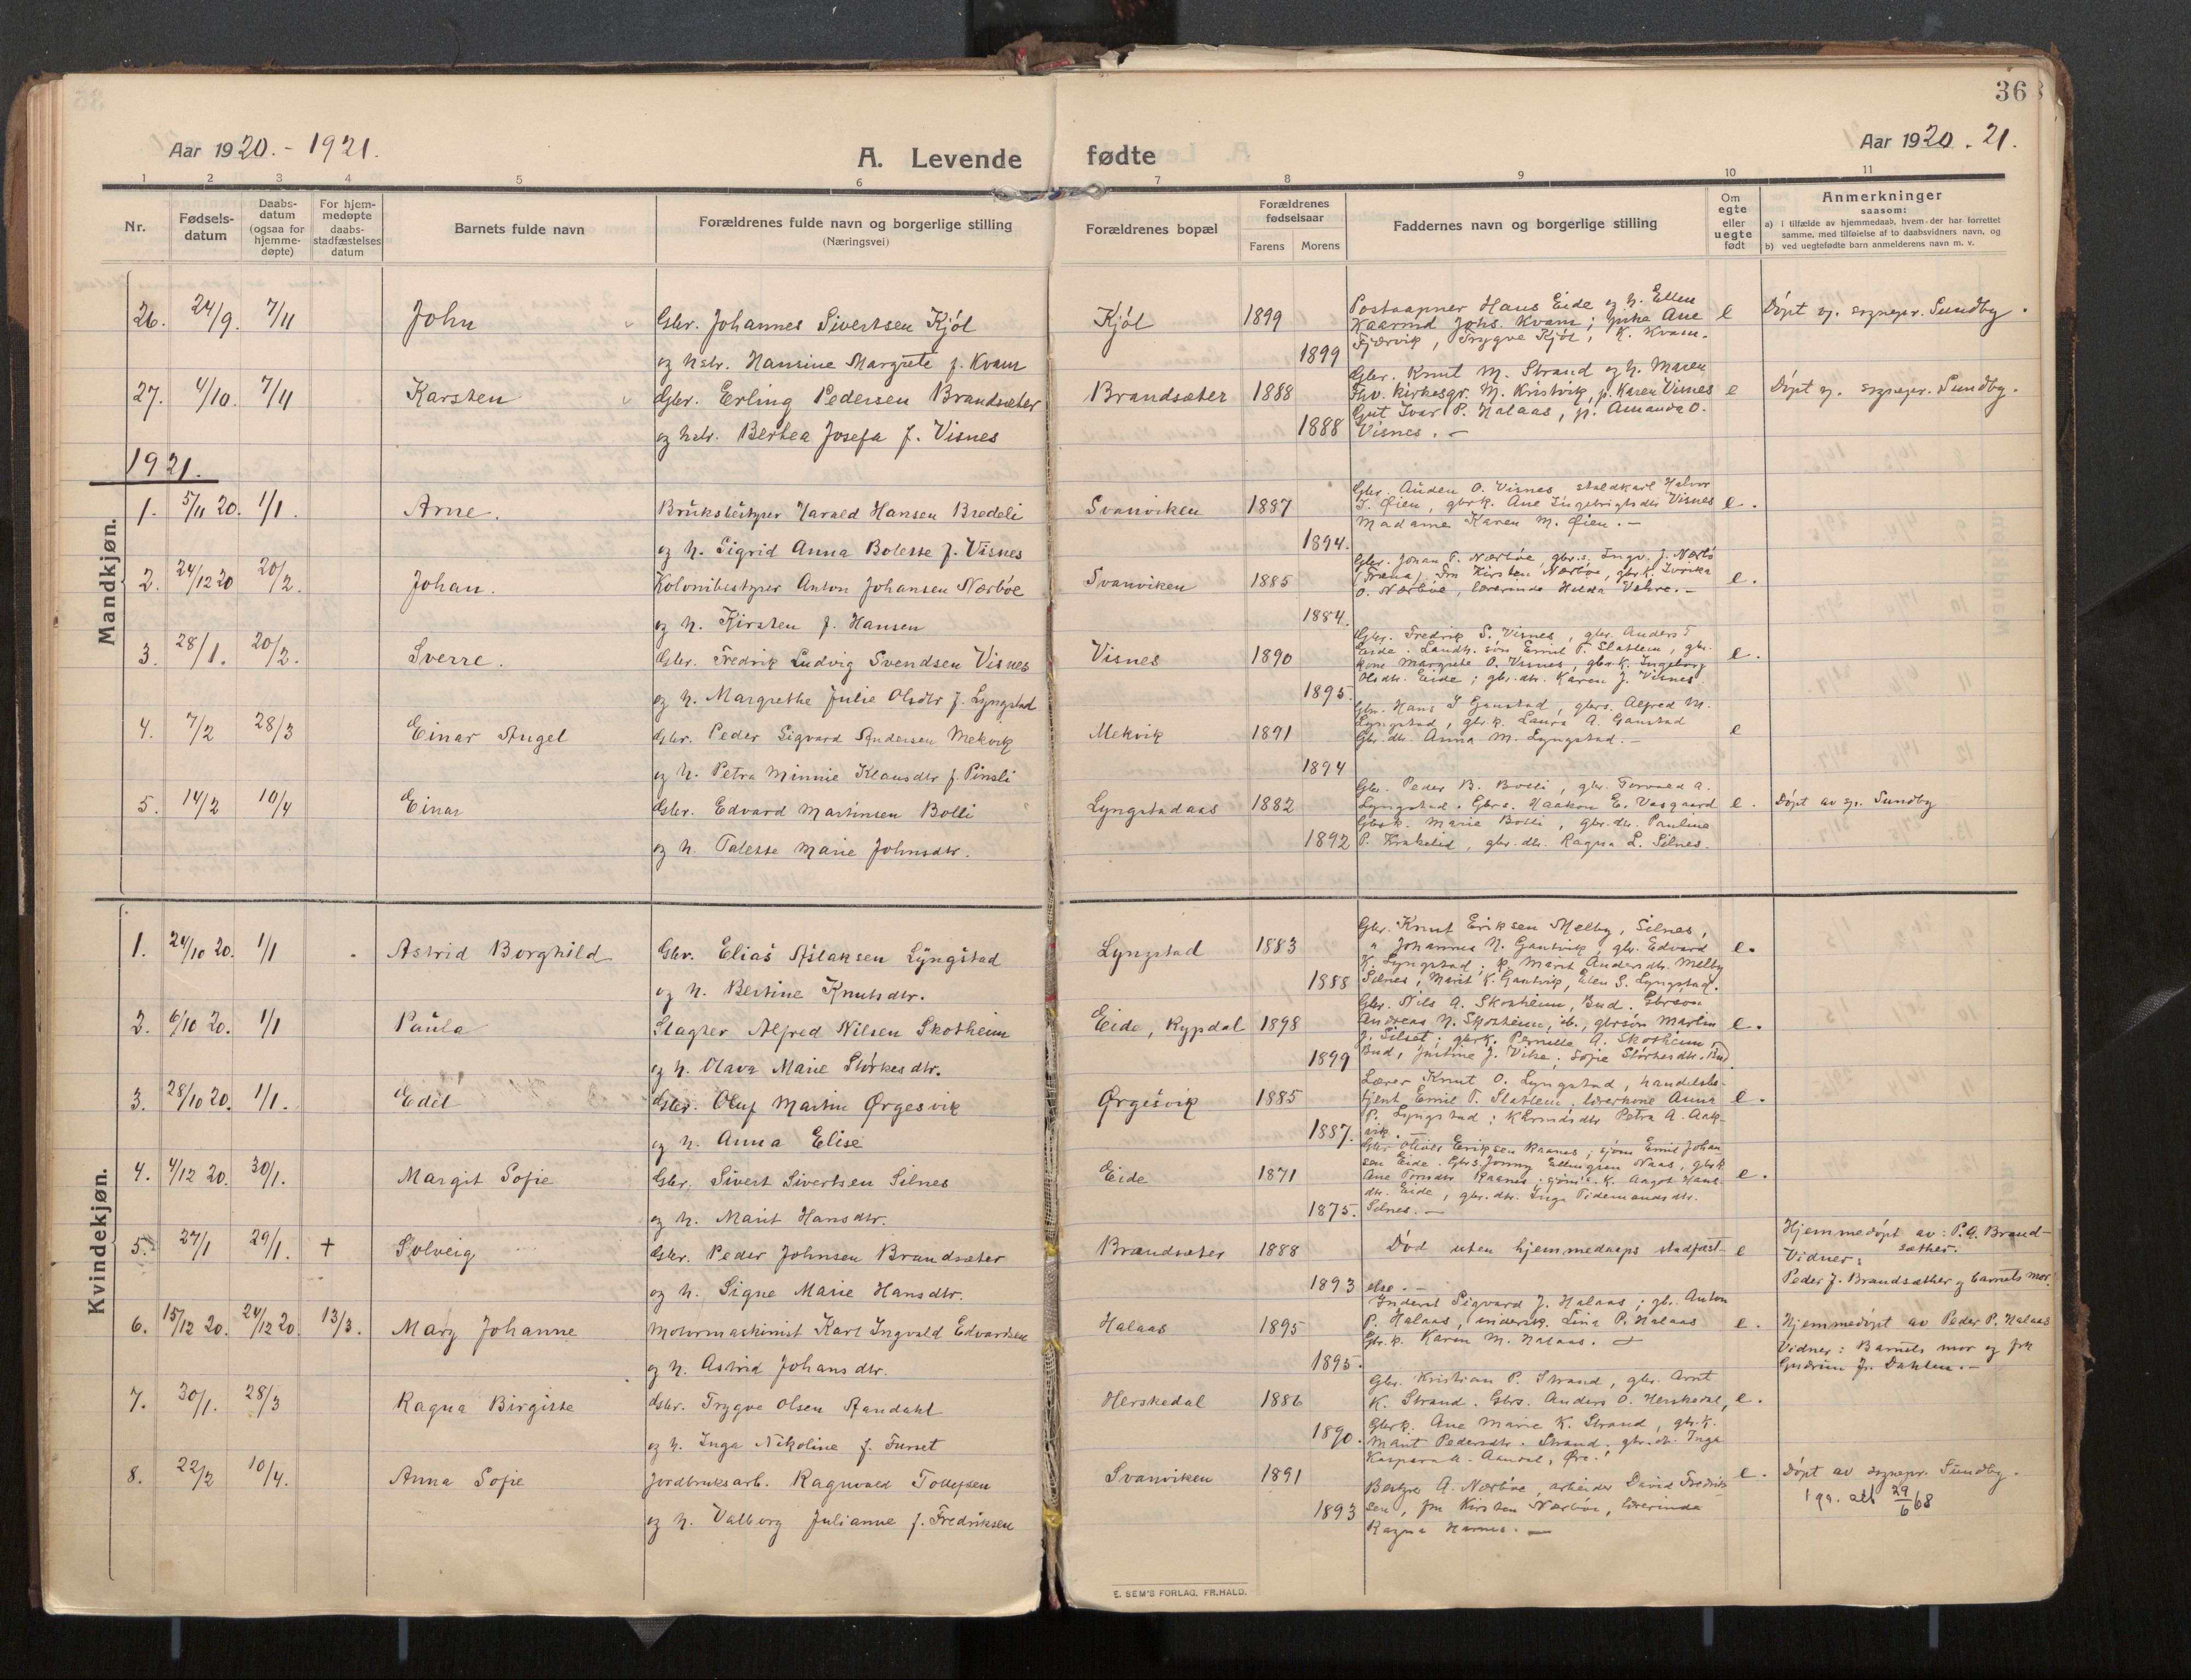 36
Aar 1920. - 1921.
A. Levende fødte
Aar 1920 - 21.
1 2 3 4 5 6 7 8 9 10 11
Nr.
Fødsels-
datum
Daabs-
datum
(ogsaa for
hjemme-
døpte)
For hjem-
medøpte
daabs-
stadfæstelses
datum
Barnets fulde navn
Forældrenes fulde navn og borgerlige stilling
(Næringsvei)
Forældrenes bopæl
Forældrenes
fødselsaar
Farens Morens
Faddernes navn og borgerlige stilling
Om
egte
eller
uegte
født
Anmerkninger
saasom:
a) i tilfælde av hjemmedaab, hvem der har forrettet
samme, med tilføielse af to daabsvidners navn, og
b) ved uegtefødte barn anmelderens navn m. v.
26. 24/9. 7/11 John Gbr. Johannes Sivertsen Kjöl Kjöl 1899 Postaapner Hans Eide og h. Ellen e Döpt v. sognepr. Sundby.
Johs. Kvam; Ane
Fjærvik, Trygve Kjöl, K. Kvam.
og hstr. Hansine Margrete f. Kvam 1899
27. 4/10. 7/11 Karsten Gbr. Erling Pedersen Brandsæter Brandsæter 1888 Gbr. Knut M. Strand og h. Maren e Döpt v. sognepr. Sundby.
Fhv. kirkesgr. M. Kristvik, p. Karen Visnes
Gut Ivar P. Halaas, p. Amanda O.
og hstr. Berthea Josefa f. Visnes 1888 Visnes. -
1921.
Mandkjøn.
1. 5/11 20. 1/1. Arne. Bruksbestyrer Harald Hansen Bredeli Svanviken 1887 Gbr. Auden O. Visnes staldkarl Halvor e.
J. Øien, gbrk. Ane Ingebrigtsdtr Visnes
Madame Karen M. Øien. -
og h. Sigrid Anna Bolette f. Visnes 1894.
2. 24/12 20 20/2. Johan. Kolonibestyrer Anton Johansen Nærböe Svanviken 1885 Gbr. Johan P. Nærböe, gbr.s. Ingv. J. Nærbö e.
(Fræna). Fru Kirsten Nærböe, gbr.k.
O. Nærböe, lærerinde Helda Vehre. -
og h. Kjirsten f. Hansen 1884.
3. 28/1. 20/2. Sverre. Gbr. Fredrik Ludvig Svendsen Visnes Visnes 1890 Gbr. Fredrik S. Visnes, gbr. Anders T. e.
Eide. Landh. søn Emil T. Slatlem, gbr.
kone Margrete O. Visnes, gbr.k. Ingeborg
Olsdtr. Eide; gbr.dtr. Karen J. Visnes
og h. Margrethe Julie Olsdtr f. Lyngstad 1895.
4. 7/2 28/3 Einar Angel Gbr. Peder Sigvard Andersen Mekvik Mekvik 1891 Gbr. Hans J Gaustad, gbrs. Alfred M. e
Lyngstad, gbr.k. Laura A. Gaustad
Gbr.dtr. Anna M. Lyngstad. -
og h. Petra Minnie Klausdtr f. Pinsli 1894
5. 14/2 10/4 Einar Gbr. Edvard Martinsen Bolli Lyngstadaas 1882 Gbr. Peder B. Bolli, gbr. Torvald A. e. Döpt av sp. Sundby
Lyngstad. Gbrs. Haakon E. Vasgaard
Gbrk. Marie Bolli, gbr.dtr. Pauline
og h. Talette Marie Johnsdtr. 1892 P. Krakelid, gbr.dtr. Ragna L. Silnes.
Kvindekjøn.
1. 24/10 20. 1/1 Astrid Borghild Gbr. Elias Aslaksen Lyngstad Lyngstad 1883 Gbr. Knut Eriksen Melby, Silnes, e.
" Johannes N. Gautvik, gbr. Edvard
K. Lyngstad; k. Marit Andersdtr. Melby
og h. Bertine Knutsdtr. 1888 Silnes, Marit K. Gautvik, Elen S. Lyngstad.
2. 6/10 20. 1/1 Paula Slagter Alfred Nilsen Skotheim Eide, Rypdal 1898 Gbr. Nils A. Skotheim, Bud. Gbrsön e.
Andreas N. Skotheim, ib., gbrsön Martin
J. Silset; gbrk. Pernille A. Skotheim,
og h. Olava Marie Störkesdtr. 1899 Bud, Justine J. Vike; Sofie Störkesdtr. Bud.
3. 28/10 20. 1/1. Edel Gbr. Oluf Martin Ørgesvik Ørgesvik 1885 Lærer Knut O. Lyngstad, handelsbe- e.
tjent Emil T. Slatlem, lærerkone Anna
P. Lyngstad; Petra A. Aak-
og h. Anna Elise 1887. vik. -
4. 4/12 20. 30/1. Margit Sofie Gbr. Sivert Sivertsen Silnes Eide 1871 Gbr. Oliver Eriksen Raanes; sjöm. Emil Johan e.
sen Eide. Gbr.s. Jonny Ellingsen Naas, gbrk
Ane Raanes; sjöm.k. Aagot Hans
dtr. Eide, gbr.dtr. Inga Tidemandsdtr.
og h. Marit Hansdtr. 1875. Silnes. -
5. 27/1 29/1. † Solveig Gbr. Peder Johnsen Brandsæter Brandsæter 1888 Död uten hjemmedaaps stadfæst- e Hjemmedöpt av: P.G. Brand-
sæther.
Vidner:
Peder J. Brandsæther og barnets mor.
og h. Signe Marie Hansdtr. 1893 else. -
6. 15/12 20. 24/12 20 13/3. Mary Johanne Motormaskinist Karl Ingvald Edvardsen Halaas 1895 Inderst Sigvard J. Halaas; gbr. Anton e. Hjemmedöpt av Peder P. Halaas
P. Halaas, inderstk. Lina P. Halaas Vidner: Barnets mor og frk
Gbr.k. Karen M. Halaas. Gudrun Fr. Dahlen. -
og h. Astrid Johansdtr. 1895.
7. 30/1. 28/3 Ragna Birgitte Gbr. Trygve Olsen Aandahl Herskedal 1886 Gbr. Kristian P. Strand, gbr. Arnt e.
K. Strand. Gbrs. Anders O. Herskedal,
Gbrk. Ane Marie K. Strand, gbr.k.
og h. Inga Nikoline f. Furset 1890. Marit Pedersdtr. Strand, gbr.dt. Inga
Kaspara A. Aandal, Øre.
8. 22/2 10/4. Anna Sofie Jordbruksarb. Ragnvald Tollefsen Svanviken 1891 Bestyrer A. Nærböe, arbeider David Fredrik- e. Döpt av sognepr. Sundby.
sen, fru Kirsten Nærböe, lærerinde 29/6 68
og h. Valborg Julianne f. Fredriksen 1893 Ragna Harnes. -
E. SEM'S FORLAG, FR.HALD.